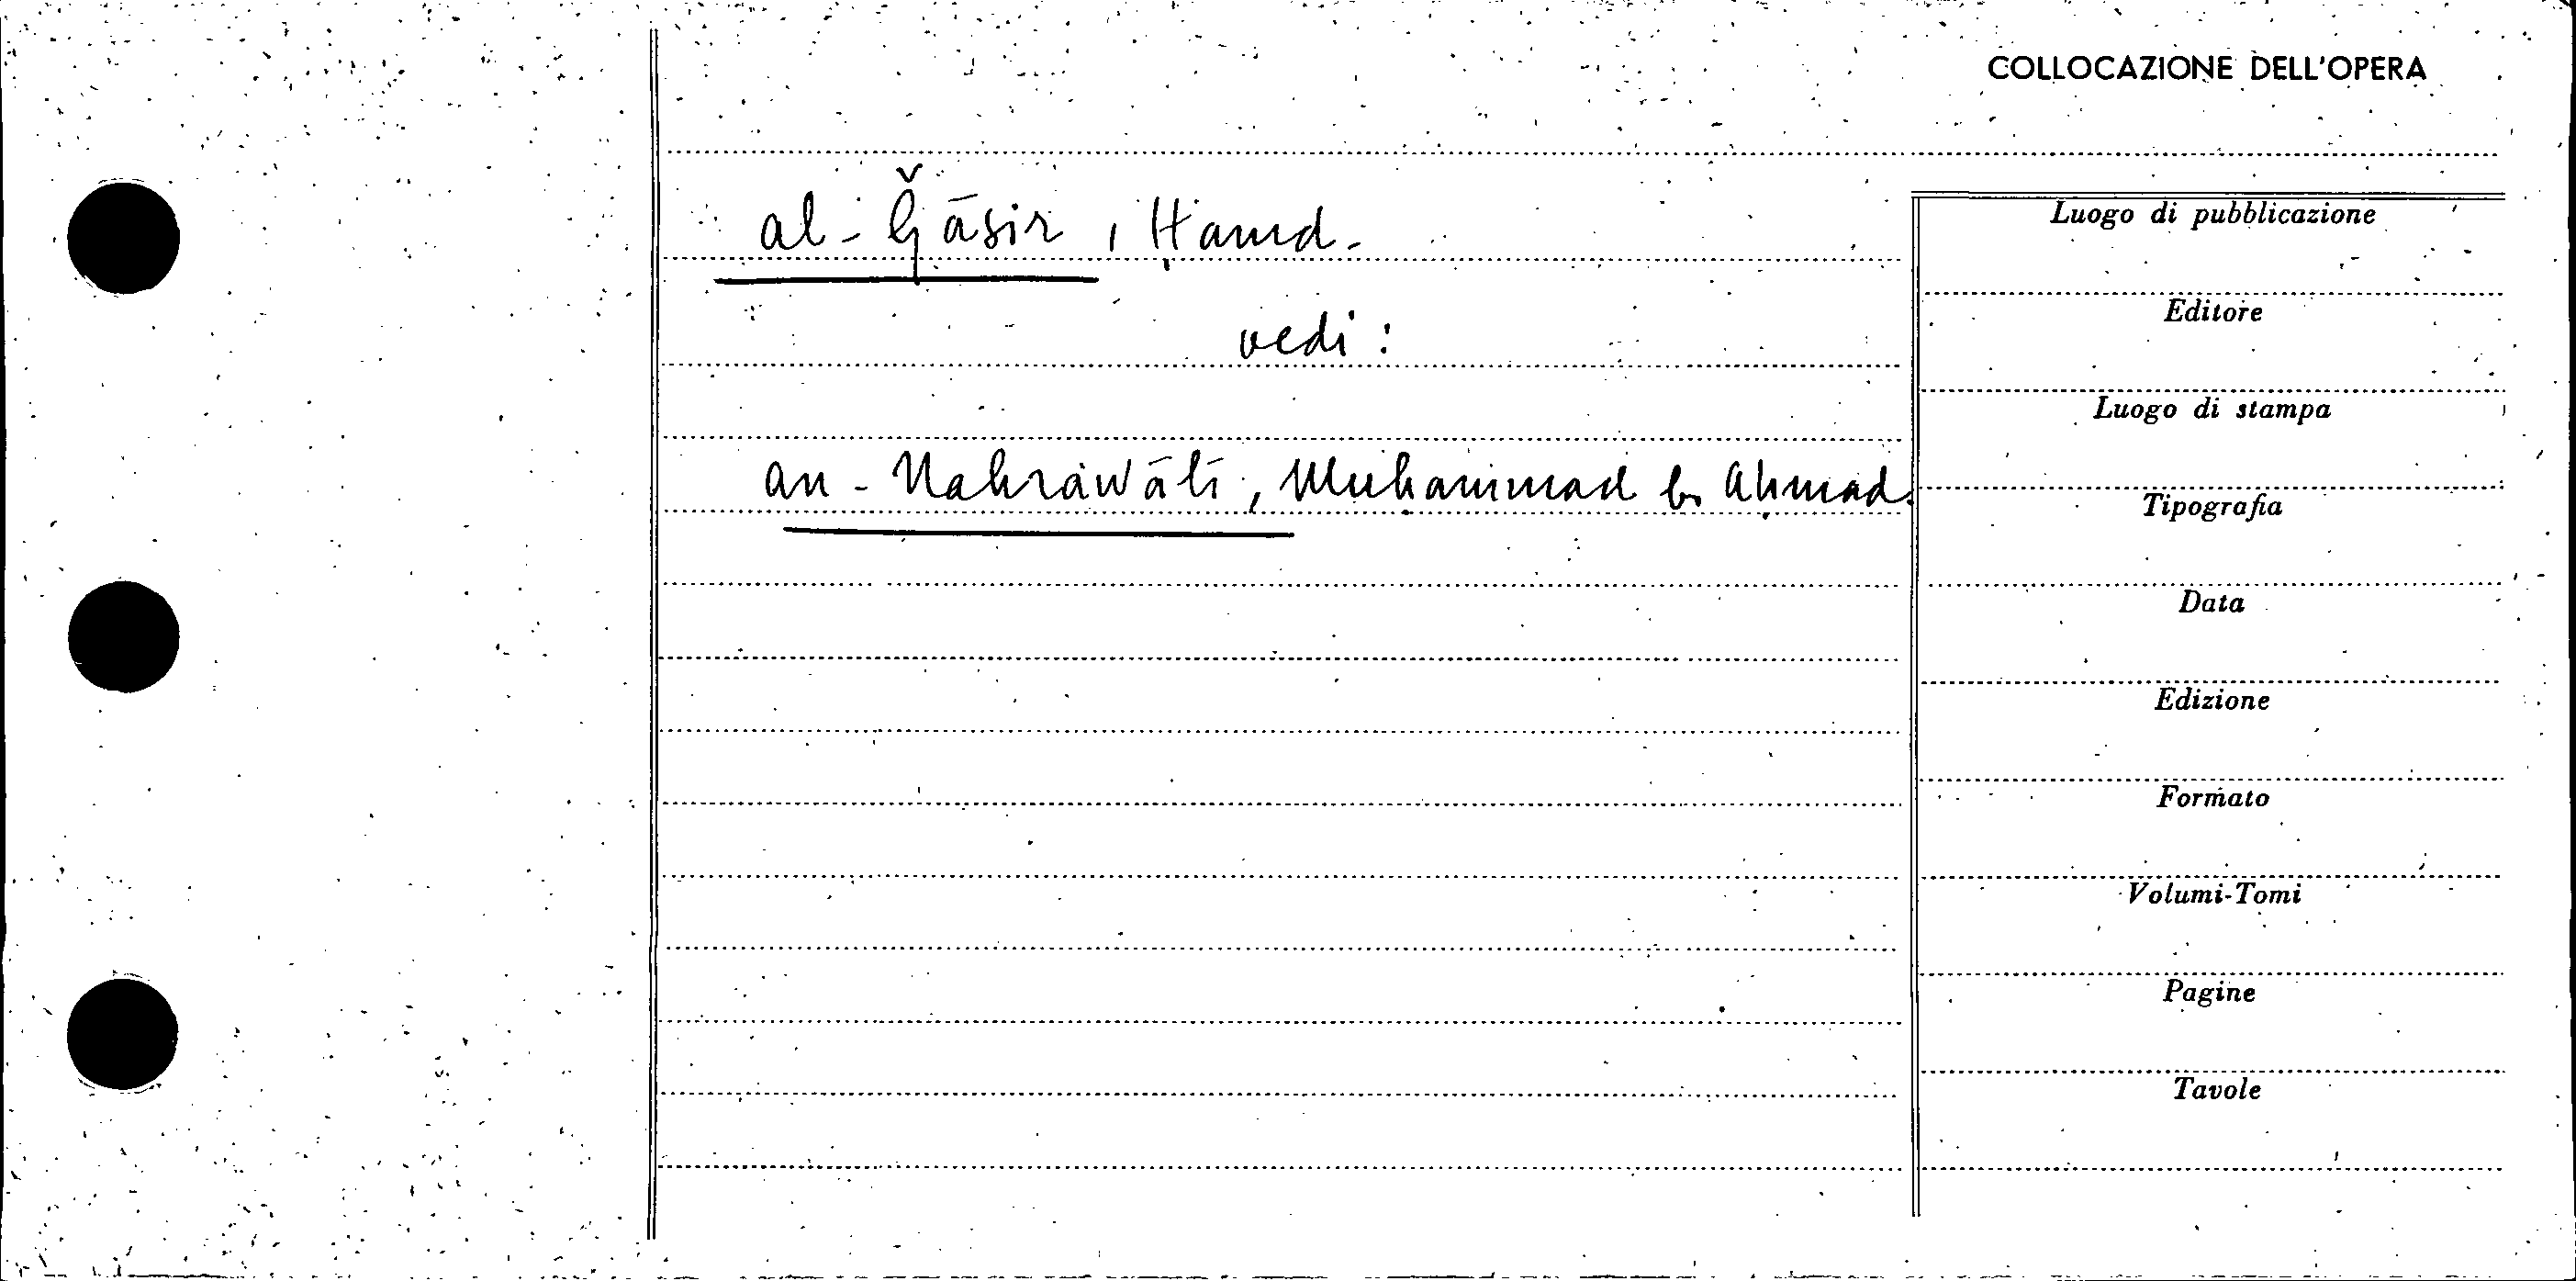 COLLOCAZIONE DELL'OPERA
al-Ǧāsir, Ḥamd.
vedi:
an-Nahrawālī, Muḥammad b. Aḥmad.
Luogo di pubblicazione
Editore
Luogo di stampa
Tipografia
Data
Edizione
Formato
Volumi-Tomi
Pagine
Tavole